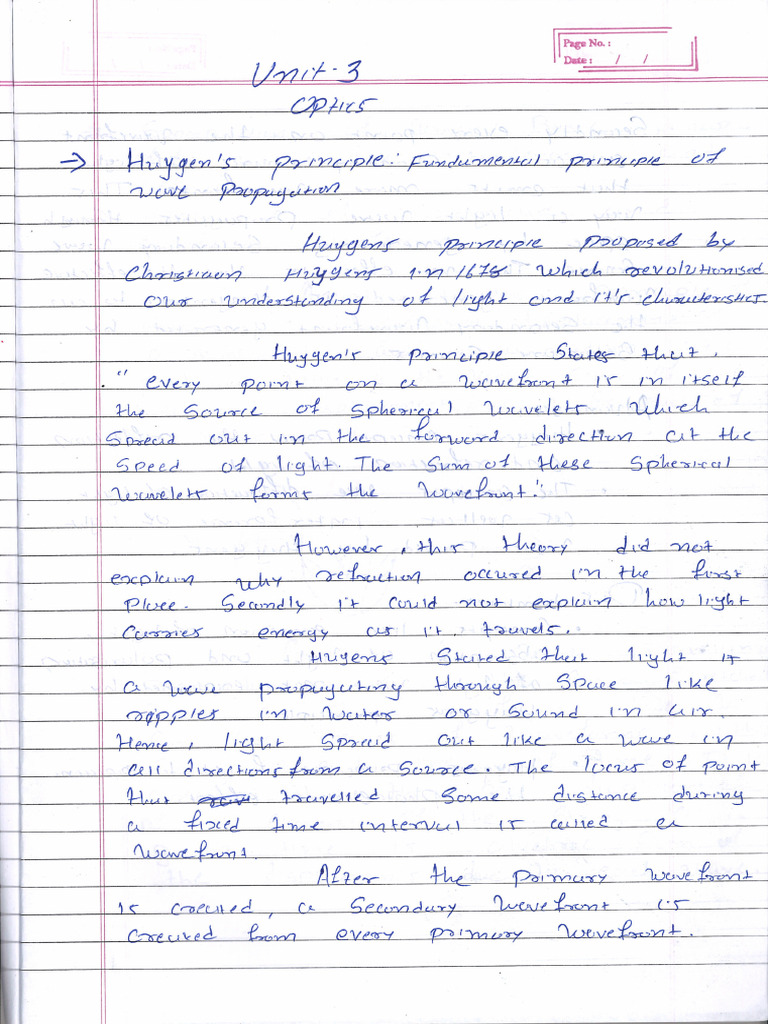 Page No. :
Date : / /
Unit-3
Optics
→ Huygen's principle: Fundamental principle of
wave Propagation
Huygens principle proposed by
Christiaan Huygens in 1678 which revolutionised
our understanding of light and it's characteristics
Huygen's principle States that.
"every point on a wavefront is in itself
the source of spherical wavelets which
spread out in the forward direction at the
speed of light. The sum of these spherical
wavelets forms the wavefront."
However, this theory did not
explain why refraction occured in the first
place. Secondly it could not explain how light
carries energy as it travels.
Hugens Stated that light is
a wave propagating through space like
ripples in water or sound in air.
Hence, light spread out like a wave in
all directions from a source. The locus of point
that travelled some distance during
a fixed time interval is called a
wavefront.
After the primary wavefront
is created, a secondary wavefront is
created from every primary wavefront.